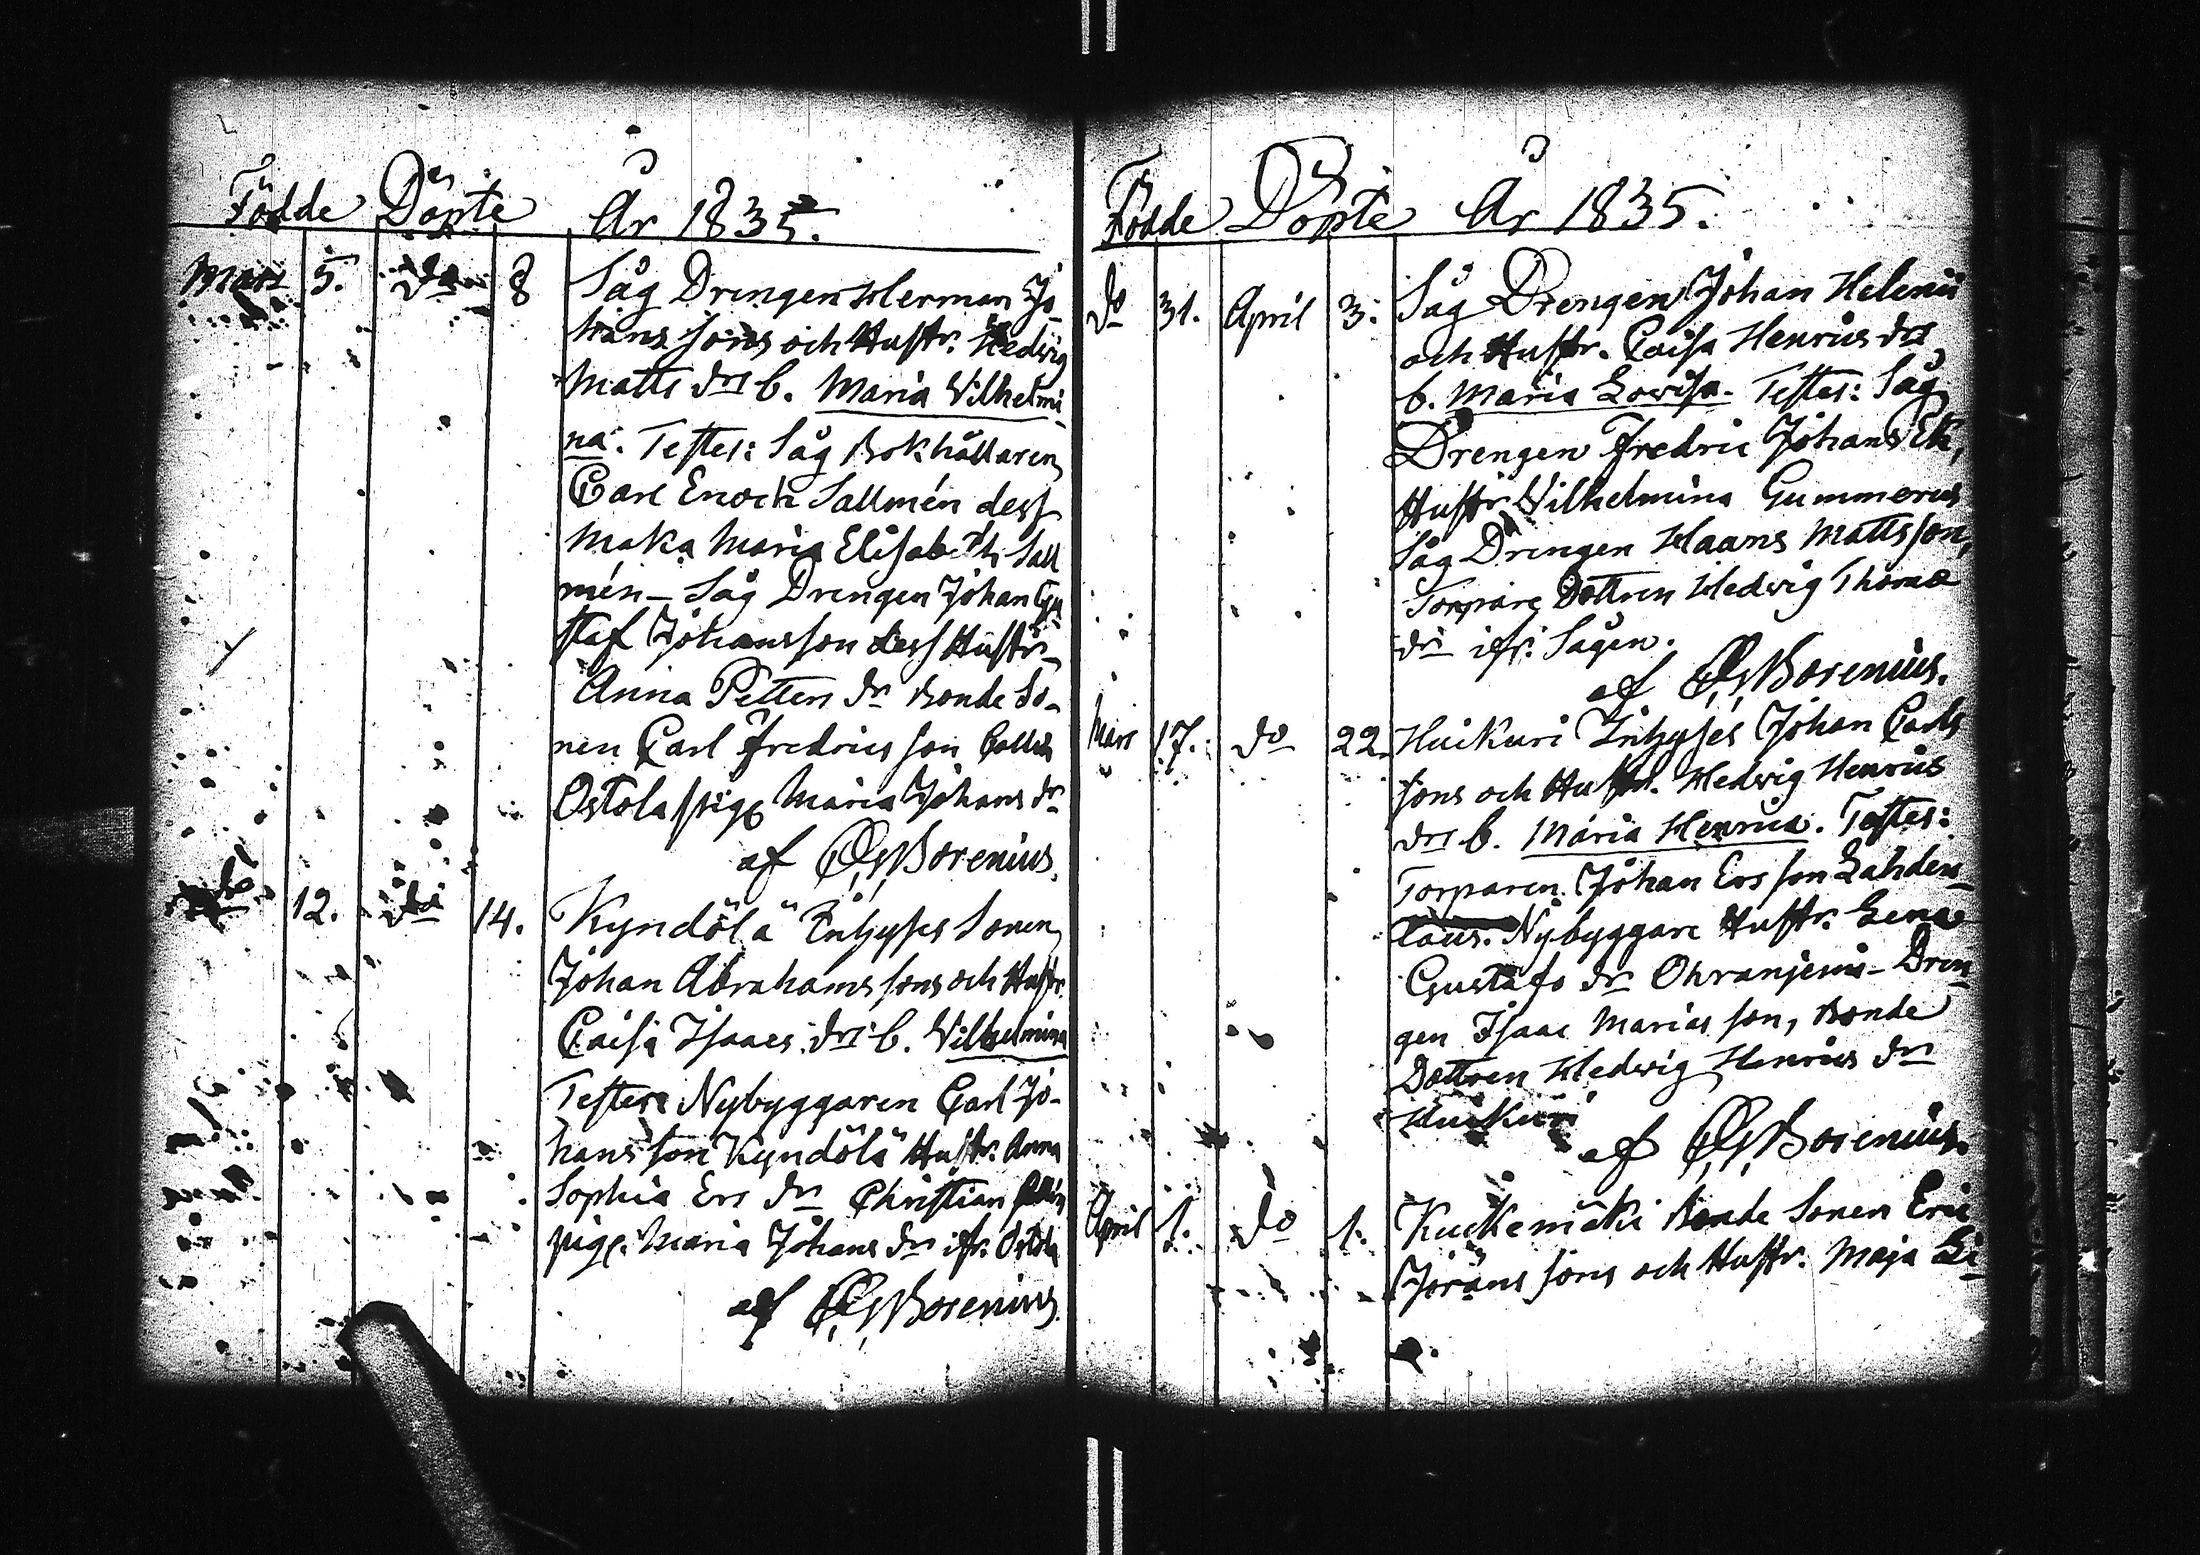 Födde Döpte År 1835.
Mars 5. do 8 Såg Drengen Herman Jo-
hans sons och Hustr. Hedvig
Matts drs b. Maria Vilhelmi-
na. Testes: Såg Bokhållaren
Carl Enoch Sallmén dess
Maka Maria Elisabeth Sall
mén - Såg Drengen Johan Gu
staf Johansson dess Hustr.
Anna Petters dr Bonde So-
nen Carl Fredrics son
Ostola pig. Maria Johans dr
af Borenius.
do 12. do 14. Kyndölä Inhyses Sonen
Johan Abrahams sons och Hustr.
Caisa Isaacs drs b. Vilhelmina
Testes: Nybyggaren Carl Jo-
hans son Kyndölä Hustr. Anna
Sophia Ers dr Christian
pig. Maria Johans dr ifr. Ostola
af Borenius.
Födde Döpte År 1835.
do 31. April 3. Såg Drengen Johan Helenii
och Hustr. Caisa Henrics drs
b. Maria Lovisa. Testes: Såg
Drengen Fredric Johans Ek,
Hustr. Vilhelmina Gummerus
Såg Drengen Haans Mattsson,
Torpare Dottren Hedvig Thomæ
dr ifr. Sågen.
af Borenius.
Mars 17. do 22. Huikuri Inhyses Johan Carls
sons och Hustr. Hedvig Henrics
drs b. Maria Henrica. Testes:
Torparen Johan Ers son Lahden-
Nybyggare Hustr. Lena
Gustafs dr Ohranjemi - Dren
gen Isaac Marias son, Bonde
Dottren Hedvig Henrics dr
Huikuri
af Borenius.
April 1. do 1. Kuikemäki Bonde Sonen Eric
Jörans sons och Hustr. Maja Li-